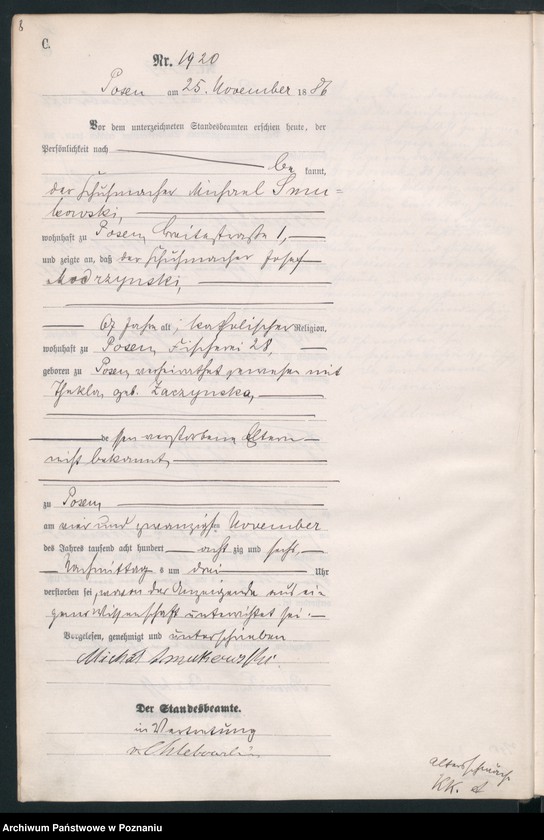 C.
Nr. 1920
Posen am 25. November 1886
Vor dem unterzeichneten Standesbeamten erschien heute, der
Persönlichkeit nach
be kannt,
der Schuhmacher Michael Smu=
kowski,
wohnhaft zu Posen, Breitestraße 1,
und zeigte an, daß der Schuhmacher Josef
Modrzynski,
67 Jahre alt, katholischer Religion,
wohnhaft zu Posen, Fischerei 28,
geboren zu Posen, verheirathet gewesen mit
Thekla, geb. Zaczynska,
dessen verstorbene Eltern
nicht bekannt,
zu Posen,
am vier und zwanzigsten November
des Jahres tausend acht hundert acht zig und sechs,
Nachmittags um drei Uhr
verstorben sei, wovon der Anzeigende aus ei-
gener Wissenschaft unterrichtet sei.
Vorgelesen, genehmigt und unterschrieben
Michał Smukowski.
Der Standesbeamte.
in Vertretung
Altersschwäche
KK. A
Archiwum Państwowe w Poznaniu